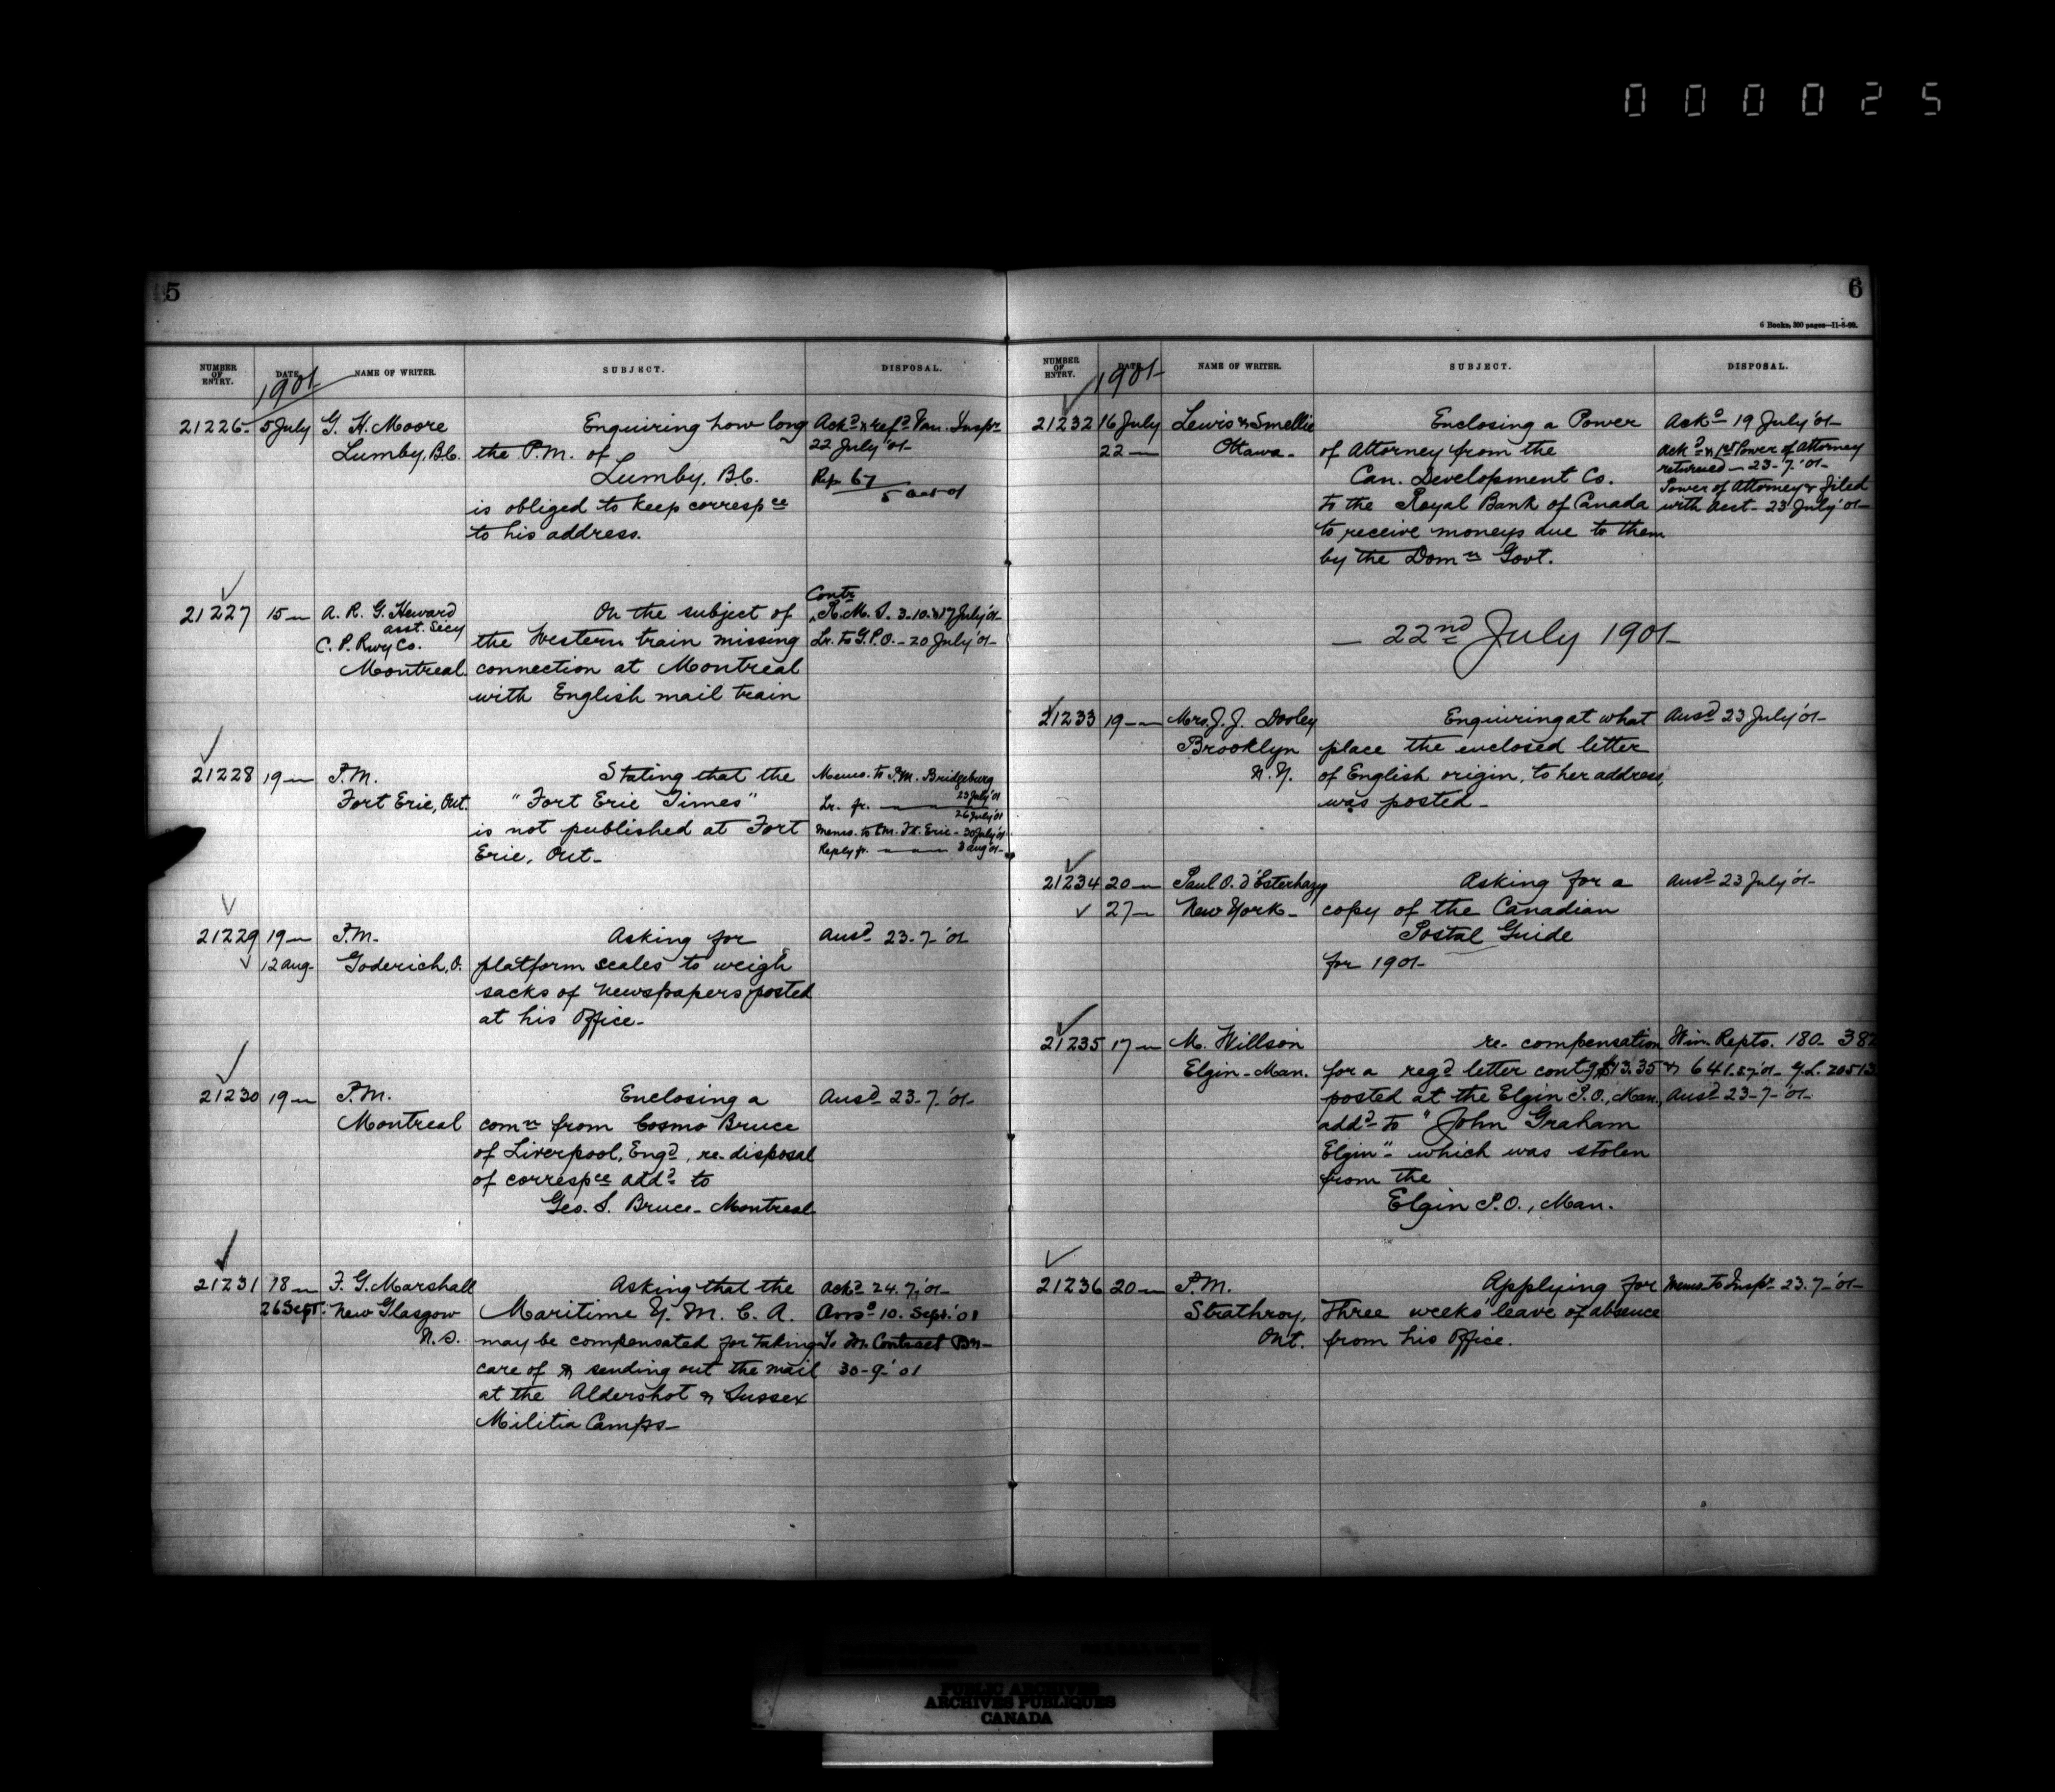 000025
5
NUMBER OF ENTRY. DATE 1901 NAME OF WRITER. SUBJECT. DISPOSAL.
21226 5 July G. H. Moore Enquiring how long Ackd & refd Van. Inspr
Lumby, B.C. the P.M. of 22 July '01
Lumby, B.C. Rep 67
5 Oct 01
is obliged to keep correspce
to his address.
21227 15 " A. R. G. Heward On the subject of Contr R.M.S. 3-10 & 17 July '01
asst. Secy
C. P. Rwy Co. the Western train missing Lr. to G.P.O. - 20 July '01
Montreal connection at Montreal
with English mail train
21228 19 " P.M. Stating that the Memo. to P.M. Bridgeburg
23 July '01
Fort Erie, Ont. "Fort Erie Times" Lr. fr. " "
26 July '01
is not published at Fort Memo. to P.M. Ft. Erie - 30 July '01
Erie, Ont. Reply fr. " " 3 Aug '01
21229 19 " P.M. Asking for Ansd 23-7-'01
12 Aug Goderich, O. platform scales to weigh
sacks of newspapers posted
at his Office.
21230 19 " P.M. Enclosing a Ansd 23-7-'01
Montreal comn from Cosmo Bruce
of Liverpool, Engd, re disposal
of correspce addd to
Geo. S. Bruce - Montreal
21231 18 " F. G. Marshall Asking that the Ackd 24.7.'01
26 Sept. New Glasgow Maritime Y. M. C. A. Ansd 10. Sept. '01
N.S. may be compensated for taking To M. Contract Bn
care of & sending out the mail 30-9-'01
at the Aldershot & Sussex
Militia Camps
6
6 Books, 300 pages—11-8-99.
NUMBER OF ENTRY. DATE 1901 NAME OF WRITER. SUBJECT. DISPOSAL.
21232 16 July Lewis & Smellie Enclosing a Power Ackd 19 July '01
22 " Ottawa of Attorney from the Ackd & 1st Power of Attorney
returned - 23-7-'01
Can. Development Co. Power of Attorney filed
to the Royal Bank of Canada with Acct - 23 July '01
to receive moneys due to them
by the Domn Govt.
22nd July 1901
21233 19 " Mrs. J. J. Dooley Enquiring at what Ansd 23 July '01
Brooklyn place the enclosed letter
N.Y. of English origin, to her address,
was posted
21234 20 " Paul O. d'Esterhazy Asking for a Ansd 23 July '01
27 " New York copy of the Canadian
Postal Guide
for 1901
21235 17 " M. Willson re compensation Win. Repts. 180. 382
Elgin - Man. for a regd letter contg $13.35 & 641.
posted at the Elgin P.O., Man., Ansd 23-7-'01
addd to "John Graham
Elgin" which was stolen
from the
Elgin P.O., Man.
21236 20 " P.M. Applying for Memo. to Inspr 23.7-'01
Strathroy, Three weeks leave of absence
Ont. from his Office.
PUBLIC ARCHIVES
ARCHIVES PUBLIQUES
CANADA